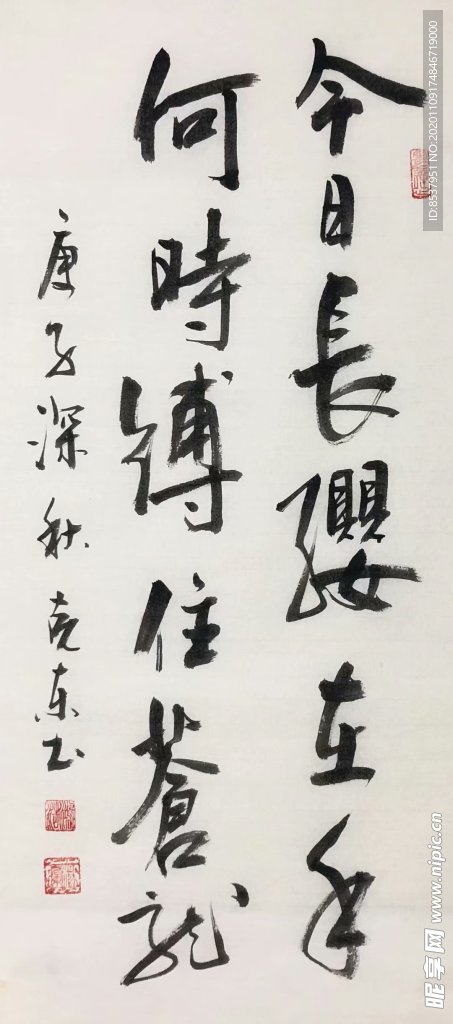 今日長纓在手
何時縛住蒼龍
庚子深秋 克东书
ID:8537951 NO:20201109174846719000
昵享网 www.nipic.cn